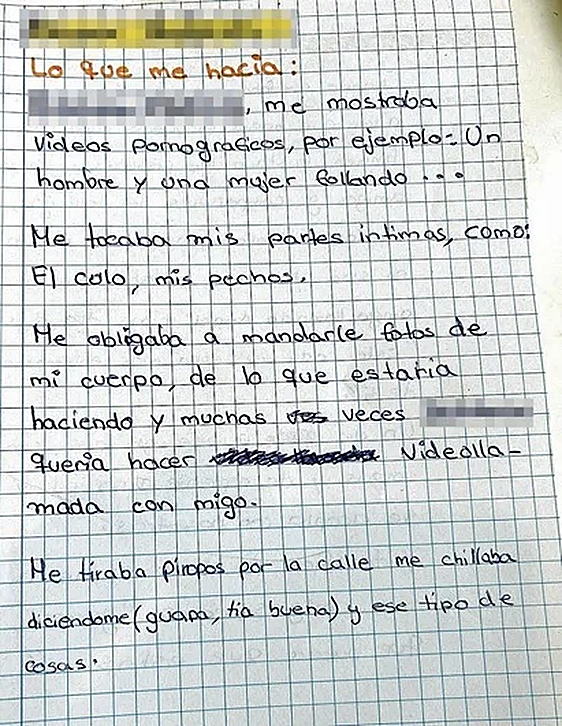 Lo que me hacia:
, me mostraba
videos pornograficos, por ejemplo: Un
hombre y una mujer follando ...
Me tocaba mis partes intimas, como:
El culo, mis pechos.
Me obligaba a mandarle fotos de
mi cuerpo, de lo que estaria
haciendo y muchas veces
queria hacer videolla-
mada con migo.
Me tiraba piropos por la calle me chillaba
diciendome (guapa, tia buena) y ese tipo de
cosas.